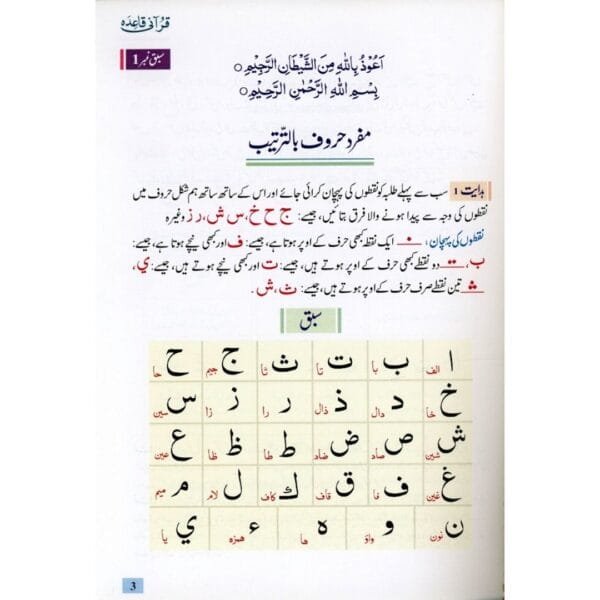 قرآنی قاعدہ
سبق نمبر 1
اَعُوْذُ بِاللّٰهِ مِنَ الشَّيْطَانِ الرَّجِيْمِ ○
بِسْمِ اللّٰهِ الرَّحْمٰنِ الرَّحِيْمِ ○
مفرد حروف بالتّرتیب
ہدایت ۱ سب سے پہلے طلبہ کو نقطوں کی پہچان کرائی جائے اور اس کے ساتھ ساتھ ہم شکل حروف میں
نقطوں کی وجہ سے پیدا ہونے والا فرق بتائیں، جیسے: ج ح خ، س ش، ر ز وغیرہ
نقطوں کی پہچان: ایک نقطہ کبھی حرف کے اوپر ہوتا ہے، جیسے: ف اور کبھی نیچے ہوتا ہے، جیسے:
ب، دو نقطے کبھی حرف کے اوپر ہوتے ہیں، جیسے: ت اور کبھی نیچے ہوتے ہیں، جیسے: ي،
تین نقطے صرف حرف کے اوپر ہوتے ہیں، جیسے: ث، ش.
سبق
ا الف ب با ت تا ث ثا ج جیم ح حا
خ خا د دال ذ ذال ر را ز زا س سین
ش شین ص صاد ض ضاد ط طا ظ ظا ع عین
غ غین ف فا ق قاف ك کاف ل لام م میم
ن نون و واؤ ه ھا ء ھمزہ ي یا
3